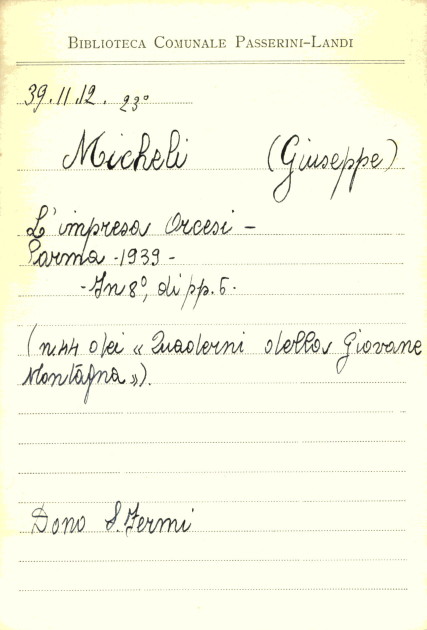 BIBLIOTECA COMUNALE PASSERINI-LANDI
39.11.12. 23°
Micheli (Giuseppe)
L'impresa Orcesi -
Parma - 1939 -
- In 8°, di pp. 6.
(n. 44 dei « Quaderni della Giovane
Montagna »).
Dono S. Fermi